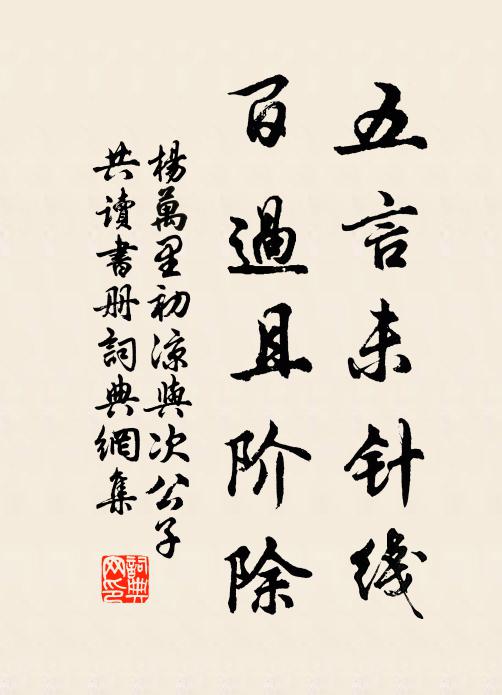 五言未针线
百過且阶除
楊萬里初涼與次公子
共讀書册詞典網集
詞典网印